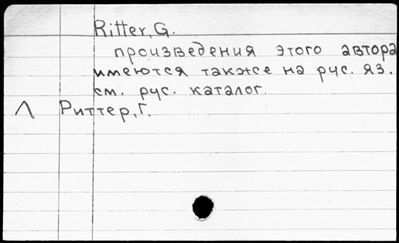 Ritter, G.
произведения этого автора
имеются также на рус. яз.
см. рус. каталог.
Л Риттер, Г.